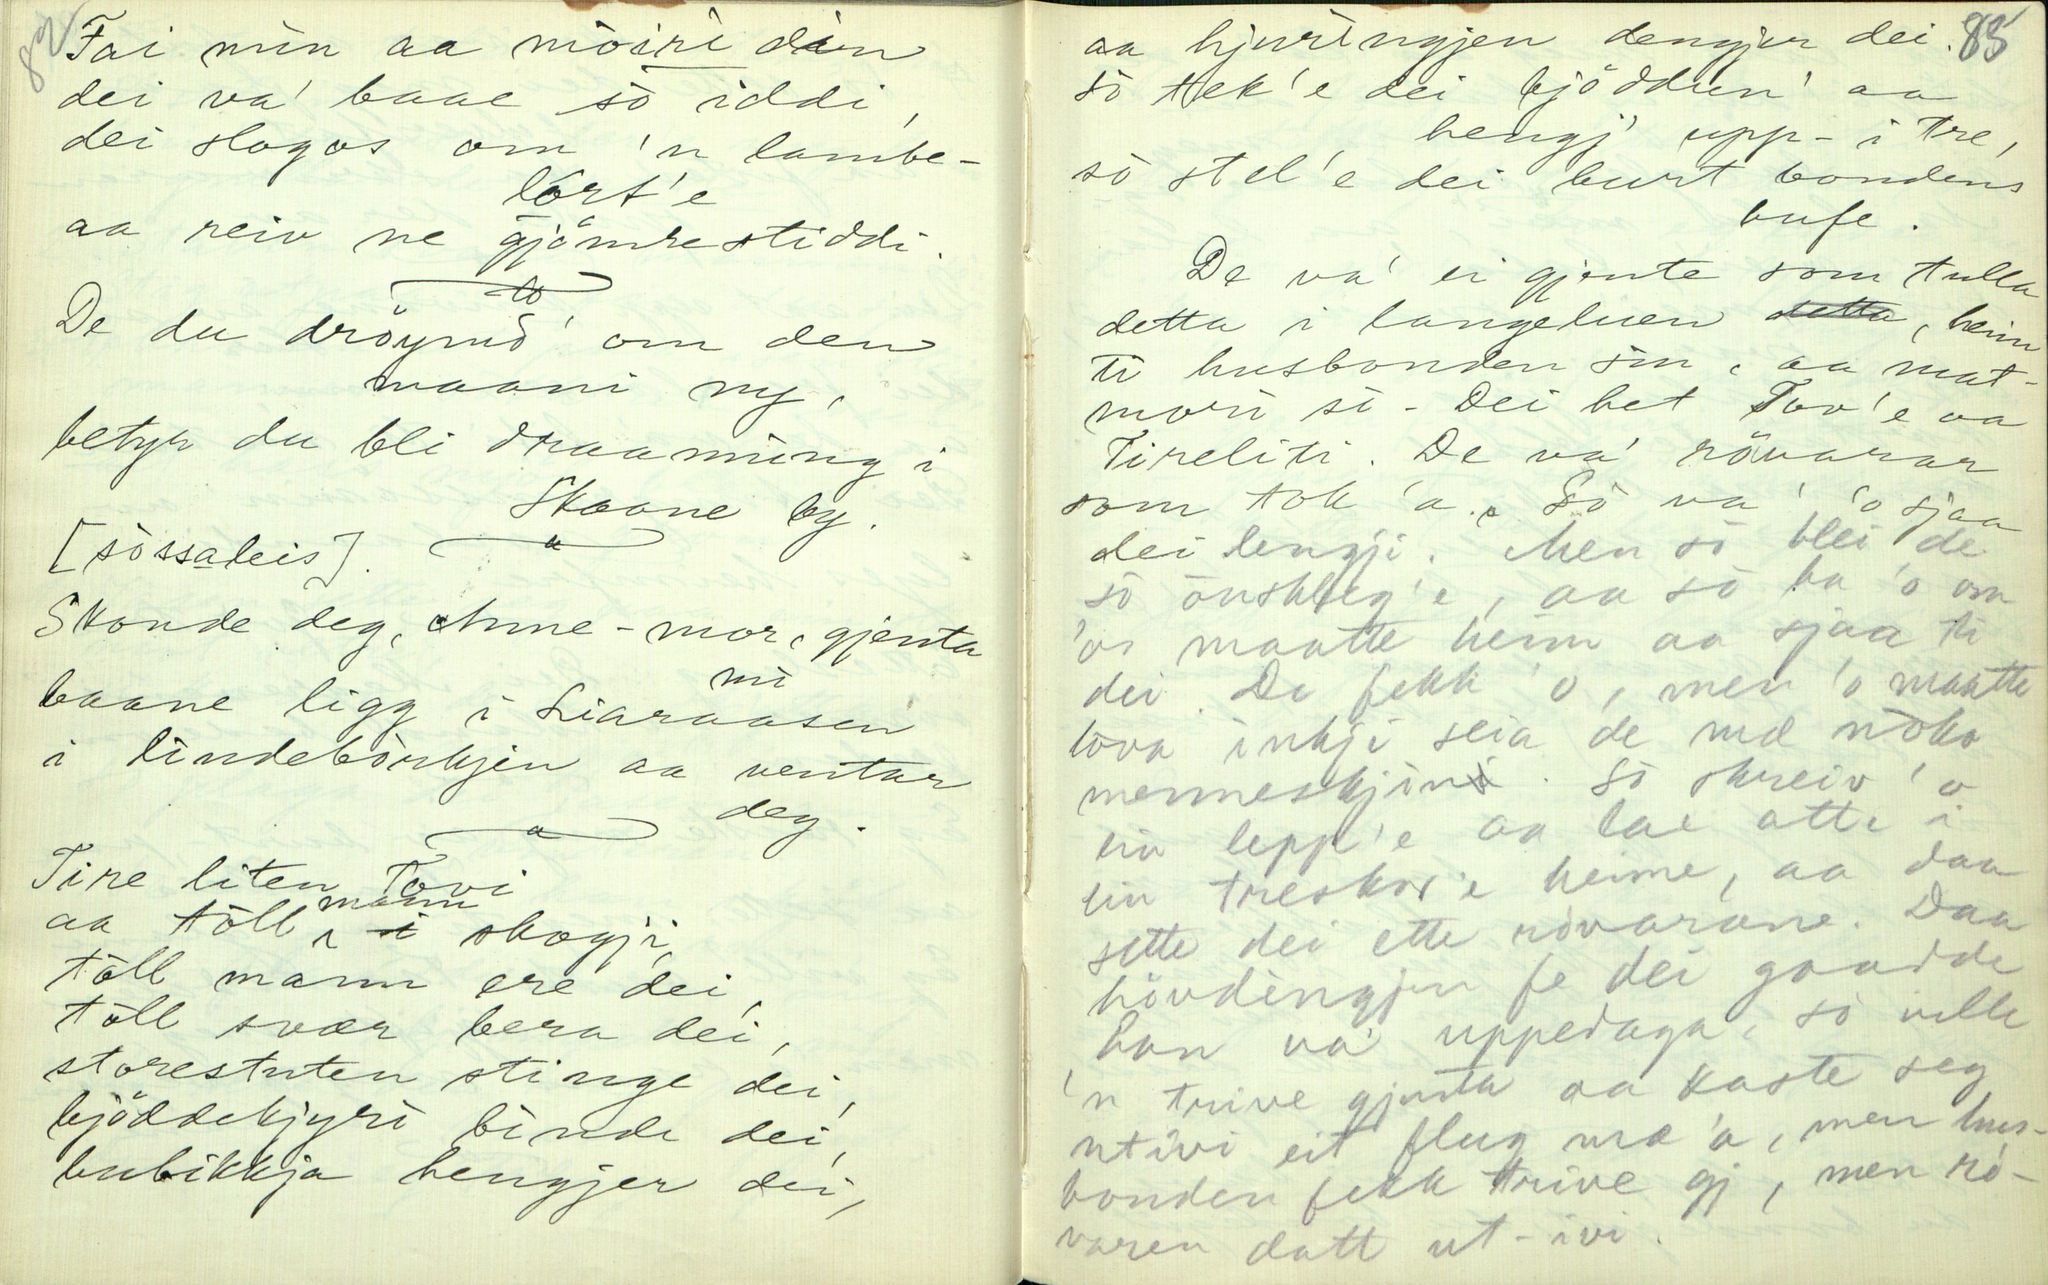 82
Fai min aa mòiri din
dei va' baae sò iddi,
dei slogos om 'n lambe-
lort'e
aa reiv ne gjömrestiddi.
De du dröymò' om den
maani ny,
betyr du bli draaming i
Skaane by.
[sòssaleis].
Skonde deg, Anne-mor, gjenta
mi
baane ligg i Liaraasen
i lindebòrkjen aa ventar
deg.
Tire liten Tovi
aa töll mann i skogji,
töll mann ere dei,
töll svær bera dei,
storestuten stinge dei,
bjöddekjyri binde dei,
bubikkja hengjer dei,
83
aa hjuringjen dengjer dei.
sò tek'e dei bjöddun' aa
hengj' upp- i tre,
sò stel'e dei burt bondens
bufe.
De va' ei gjente som tulla
detta i langeluen detta, heim
ti husbonden sin, aa mat-
mori si - Dei het Tov'e aa
Tireliti. De va' rövarar
som tok 'a. Sò va' 'o sjaa
dei lengji. Men sò blei de
sò önskleg'e, aa sò ba 'o om
'os maatte heim aa sjaa ti
dei. De fekk 'o, men 'o maatte
lova inkji seia de mæ nòko
menneskjin. Sò skreiv 'o
ein lepp'e aa lae atti i
ein treskor'e heime, aa daa
sette dei ette rövarane. Daa
hövdingjen fe dei gaadde
han va' uppedaga, sò ville
'n trive gjenta aa kaste seg
utivi eit flug mæ 'a, men hus-
bonden fekk trive gj, men rö-
varen datt ut-ivi.